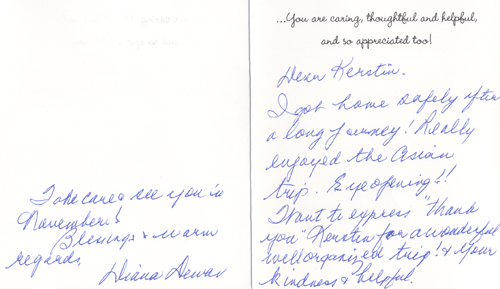 ...You are caring, thoughtful and helpful,
and so appreciated too!
Dear Kerstin.
I got home safely after
a long journey! Really
enjoyed the Asian
trip. Eye opening!!
Want to express "thank
you" Kerstin for a wonderful
well organized trip! & your
kindness & helpful.
Take care & see you in
November!
Blessings & warm
regards.
Diana Dewar